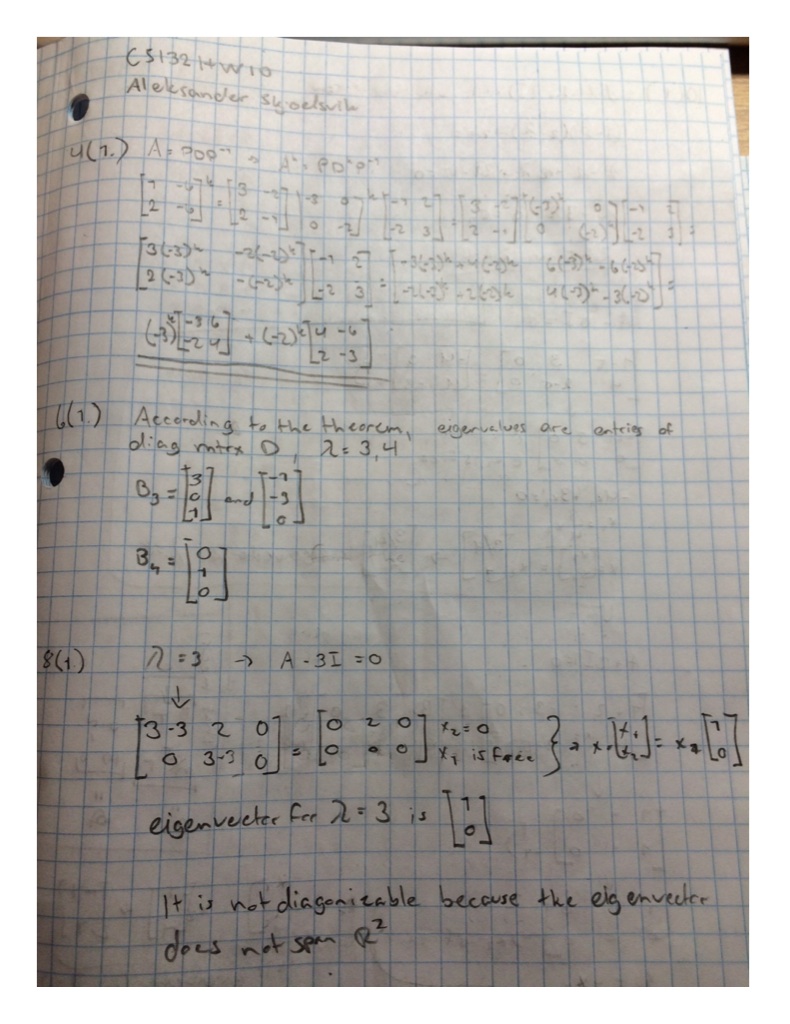 CS132 HW10
Aleksander
4(1.) A = PDP⁻¹ → Aᵏ = PDᵏP⁻¹
[1 -6; 2 -6]ᵏ = [3 -2; 2 -1] [-3 0; 0 -2]ᵏ [-1 2; -2 3] = [3 -2; 2 -1] [(-3)ᵏ 0; 0 (-2)ᵏ] [-1 2; -2 3] =
[3(-3)ᵏ -2(-2)ᵏ; 2(-3)ᵏ -(-2)ᵏ] [-1 2; -2 3] = [-3(-3)ᵏ+4(-2)ᵏ 6(-3)ᵏ-6(-2)ᵏ; -2(-3)ᵏ+2(-2)ᵏ 4(-3)ᵏ-3(-2)ᵏ] =
(-3)ᵏ [-3 6; -2 4] + (-2)ᵏ [4 -6; 2 -3]
6(1.) According to the theorem, eigenvalues are entries of
diag mtrx D, λ = 3, 4
B₃ = [3; 0; 1] and [-1; -3; 0]
B₄ = [0; 1; 0]
8(1) λ = 3 → A - 3I = 0
↓
[3-3 2 0; 0 3-3 0] = [0 2 0; 0 0 0] x₂ = 0 x₁ is free } → x = [x₁; x₂] = x₁ [1; 0]
eigenvector for λ = 3 is [1; 0]
It is not diagonizable because the eigenvector
does not span R²